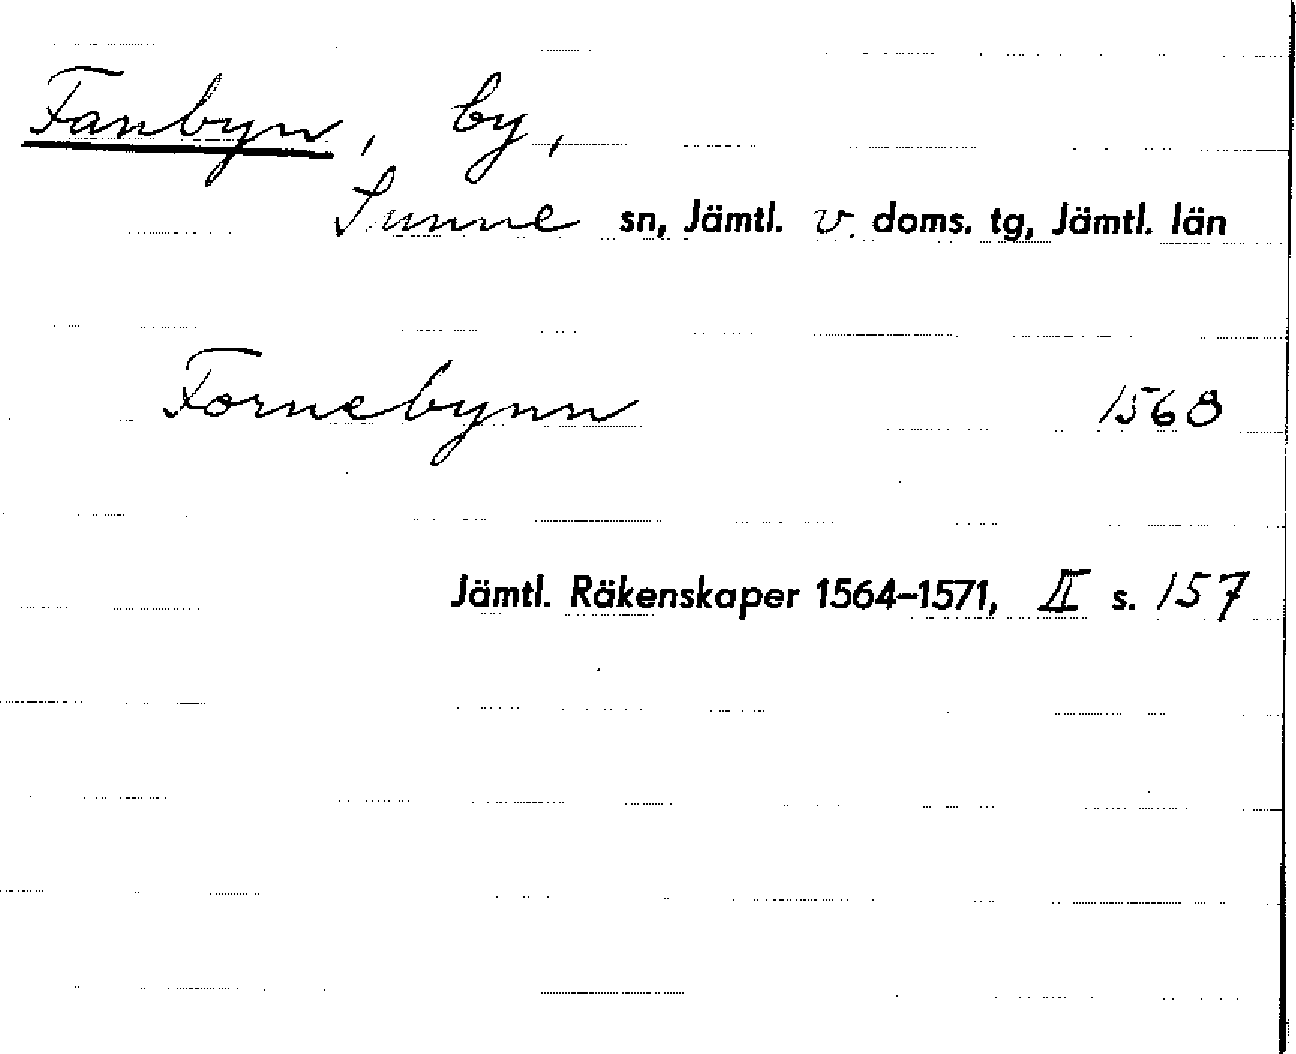 Fanbyn, by,
Sunne sn, Jämtl. v. doms. tg, Jämtl. län
Fornebynn 1568
Jämtl. Räkenskaper 1564–1571, II s. 157